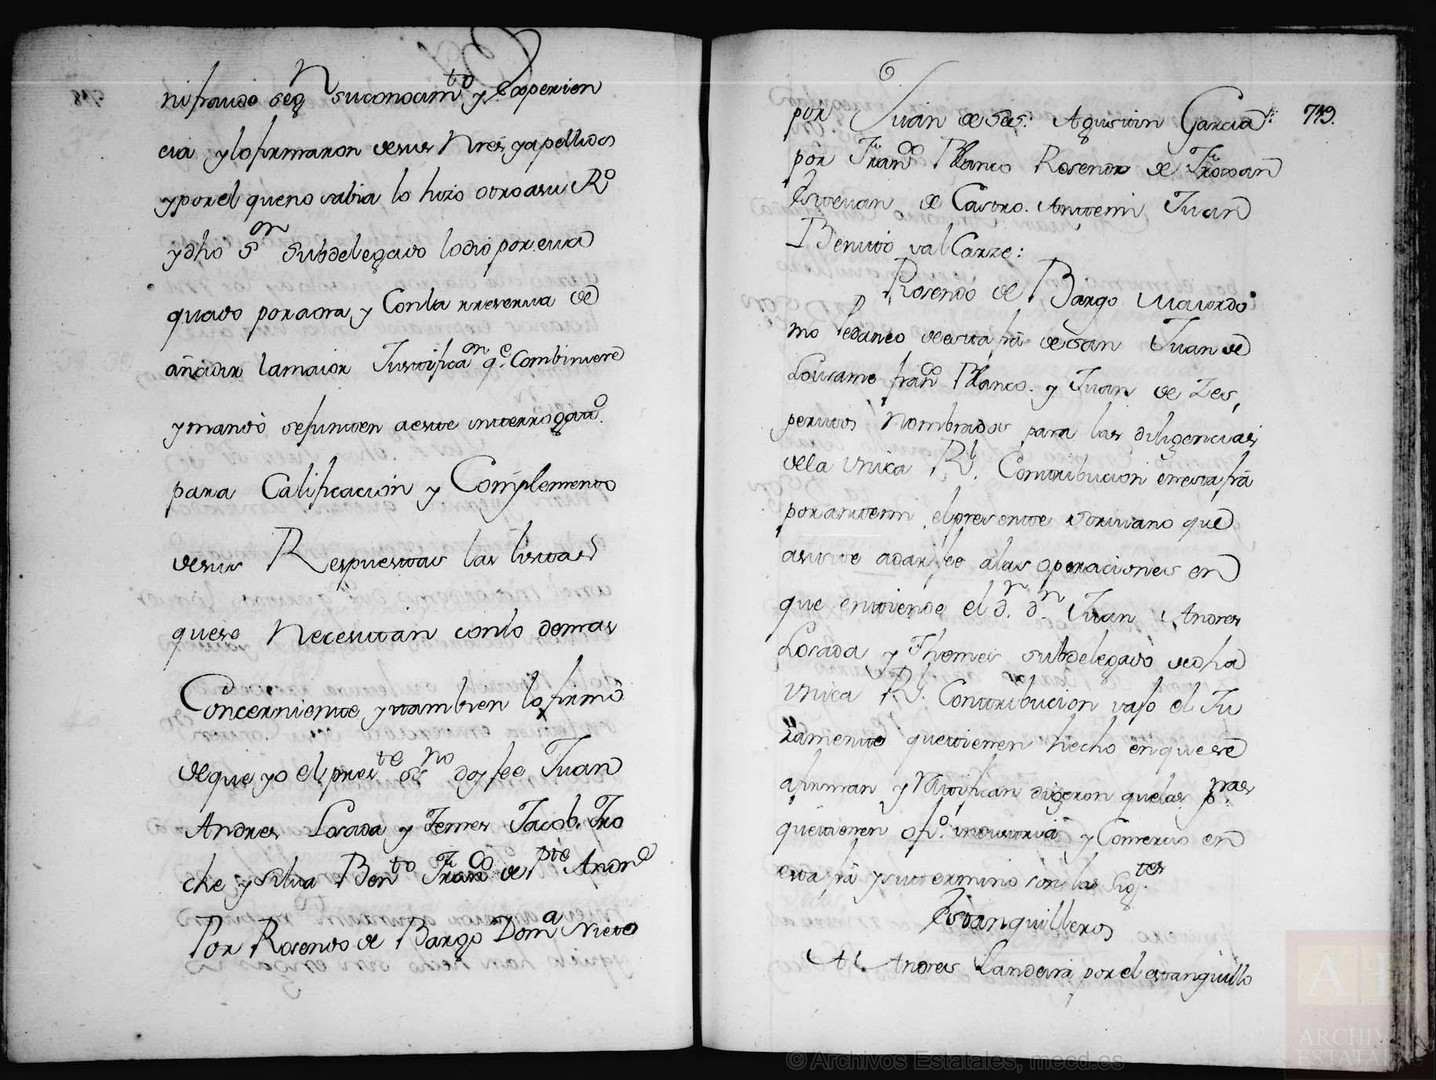 ni fraude segn su conocamto y Experien
cia y lo firmaron de sus Nres y apellidos
y por el que no sabia lo hizo otro a su Ro
y dho Sor Subdelegado lo dio por eva
quado por aora, y Con la rreserva de
añidir la maior Justificaon qe Combiniere
y mandó se junten a este interrogato.
para Calificación y Complemento
de sus Respuestas las listas
que se Necesitan con lo demas
Concerniente, y tambien lo firmó
de que yo el preste Srno doy fee Juan
Andres Losada y Temes Jacob. Tro
che y silva Bento Franco de Pte Andre
Por Rosendo de Bargo Doma Nieto
por Juan de Ses: Agustin Garcia: 719.
por Franco Blanco Rosendo de
Estevan de Castro. Antemi Juan
Benito valCarze:
Rosendo de Bargo Maiordo
mo Pedaneo de esta fra de San Juan de
Lousame franco Blanco. y Juan de Ses,
peritos Nombrados para las diligencias
de la Unica Rl. Contribucion en esta fra
por antemi el presente escrivano que
asiste a dar fee a las operaciones en
que entiende el dr. dn Juan Andres
Losada y Themes subdelegado de dha
Unica Rl. Contribucion vajo el Ju
ramento que tienen hecho en que se
afirman y Ratifican digeron que las pnas
que tienen ofo. industria y Comercio en
esta fra y su termino son las sigtes
Estanquilleros
A Andres Landeira por el estanquillo
© Archivos Estatales, mecd.es
AE
ARCHIVOS
ESTATALES